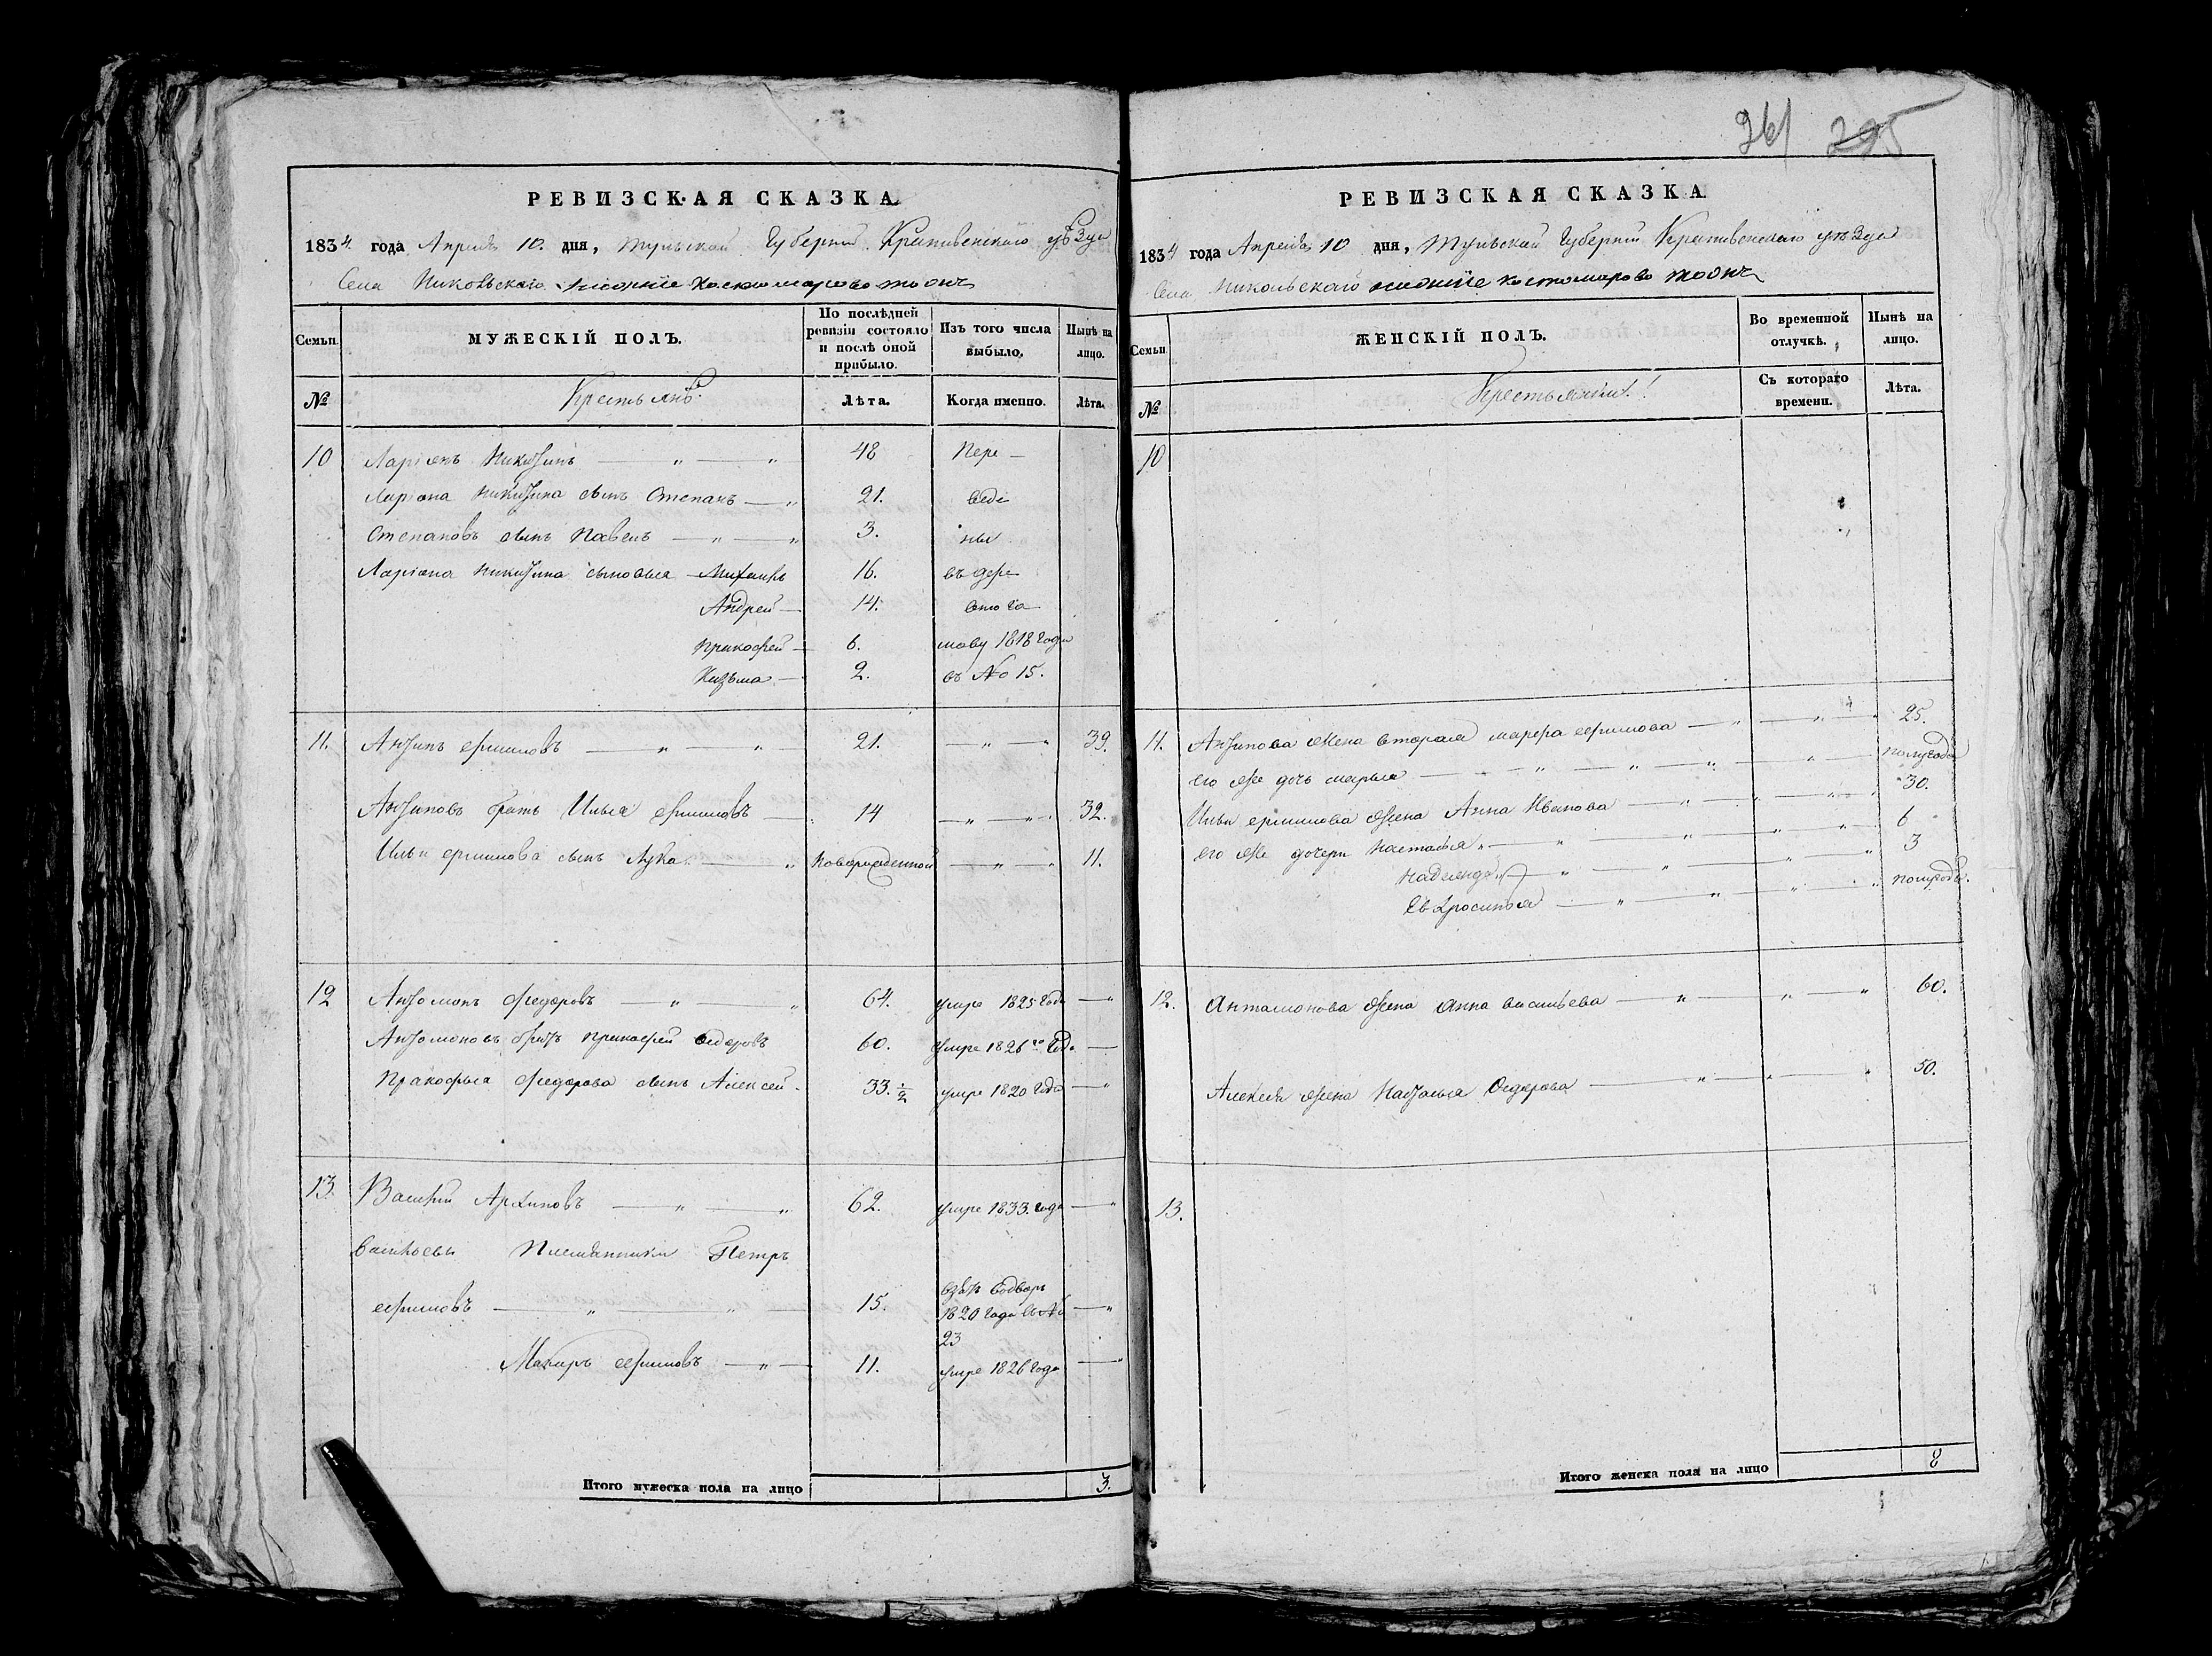 261 295
РЕВИЗСКАЯ СКАЗКА
1834 года Апреля 10. дня, Тульской Губернии Крапивенскаго уѣзда
Села Никольскаго Костомарово тожъ
Семьи.
МУЖЕСКІЙ ПОЛЪ.
По послѣдней ревизіи состояло и послѣ оной прибыло.
Изъ того числа выбыло.
Нынѣ на лицо.
№
Крестьянъ
Лѣта.
Когда именно.
Лѣта.
10 Ларіонъ Никитинъ — „ — „ 48 Пере —
Ларіона Никитина сынъ Степанъ — „ 21. веде
Степановъ сынъ Павелъ — „ — „ 3. ны
Ларіона Никитина сыновья Михаилъ 16. въ дере
Андрей — 14.
Пракофей — 6. 1818 года
Кузьма — 2. въ № 15.
11. Антипъ ефимовъ — „ — „ 21. — „ — „ 39.
Антиповъ братъ Илья ефимовъ — 14 — „ — „ 32.
Ильи ефимова сынъ Лука — „ новорожденной — „ — „ 11.
12 Антомонъ Федоровъ — „ — „ 64. умре 1825 года — „
Антомоновъ братъ Пракофей Федоровъ 60. умре 1826го года —
Пракофья Федорова сынъ Алексей 33. 1/2 умре 1820 года — „
13. Василий Архиповъ — „ — „ 62. умре 1833. года — „
Васильевы Племянники Петръ
ефимовъ — „ — „ — 15. взятъ во дворъ 1820 года в № 23 — „
Макаръ ефимовъ — „ — 11. умре 1826 года — „
Итого мужеска пола на лицо 3.
РЕВИЗСКАЯ СКАЗКА
1834 года Апреля 10 дня, Тульской Губернии Крапивенскаго уѣзда
Села Никольскаго костомарово тожъ
Семьи.
ЖЕНСКІЙ ПОЛЪ.
Во временной отлучкѣ.
Нынѣ на лицо.
№
Съ котораго времени.
Лѣта.
10
11. Антипова жена вторая марфа ефимова — „ — „ — „ 25.
его же дочь марья — „ — „ — „ — „ — полугода
Ильи ефимова жена Анна Иванова — „ — „ — „ 30.
его же дочери Настасья „ — „ — „ — „ — „ 6
Надежда — „ — „ — „ — „ 3
Евфросинья — „ — „ — „ — „ полугода.
12. Антамонова жена Анна васильева — „ — „ — „ 60.
Алексея жена Наталья Федорова — „ — „ — „ 50.
13.
Итого женска пола на лицо 8